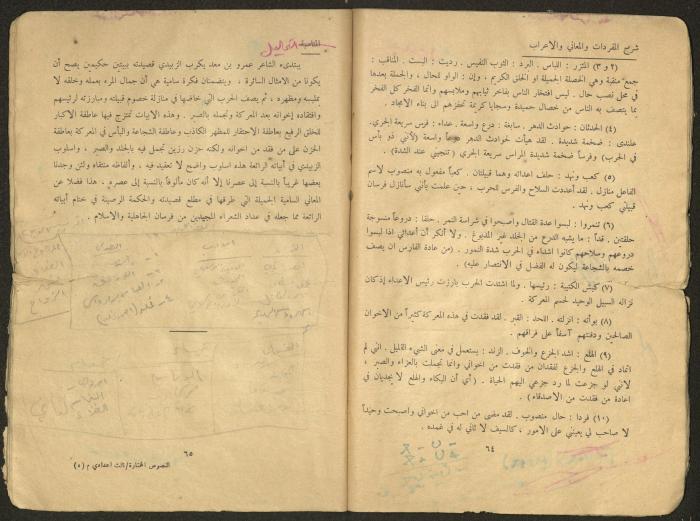 شرح المفردات والمعاني والاعراب
(٢ و ٣) المئزر : اللباس . البرد : الثوب النفيس . رديت : البست . المناقب :
جمع منقبة وهي الخصلة الجميلة او الخلق الكريم ، وإن : الواو للحال ، والجملة بعدها
في محل نصب حال . ليس افتخار الناس بفاخر ثيابهم وملابسهم وانما الفخر كل الفخر
بما يتصف به الناس من خصال حميدة وسجايا كريمة تحفزهم الى بناء الامجاد .
(٤) الحدثان : حوادث الدهر . سابغة : درع واسعة . عداء : فرس سريعة الجري .
علندى : ضخمة شديدة . لقد هيأت لحوادث الدهر درعاً واسعة (لأني ذو بأس
في الحرب) وفرساً ضخمة شديدة المراس سريعة الجري (تنجيني عند الشدة) .
(٥) كعب ونهد : حلف اعدائه وهما قبيلتان . كعباً مفعول به منصوب لاسم
الفاعل منازل . لقد أعددت السلاح والفرس للحرب ، حين علمت بأني سأنازل فرسان
قبيلتي كعب ونهد .
(٦) تنمروا : لبسوا عدة القتال واصبحوا في شراسة النمر . حلقا : دروعاً منسوجة
حلقتين . قداً : ما يشبه الدرع من الجلد غير المدبوغ . ولا أنكر أن أعدائي اذا لبسوا
دروعهم وسلاحهم كانوا اشداء في الحرب شدة النمور . (من عادة الفارس ان يصف
خصمه بالشجاعة ليكون له الفضل في الانتصار عليه) .
(٧) كبش الكتيبة : رئيسها . ولما اشتدت الحرب بارزت رئيس الاعداء إذ كان
نزاله السبيل الوحيد لحسم المعركة .
(٨) بوأته : انزلته . اللحد : القبر . لقد فقدت في هذه المعركة كثيراً من الاخوان
الصالحين ودفنتهم آسفاً على فراقهم .
(٩) الهلع : اشد الجزع والخوف . الزند : يستعمل في معنى الشيء القليل . انني لم
اتماد في الهلع والجزع لفقدان من فقدت من اخواني وانما تجملت بالعزاء والصبر ،
لانني لو جزعت لما رد جزعي اليهم الحياة . (أي أن البكاء والهلع لا يجديان في
اعادة من فقدت من الاصدقاء) .
(١٠) فردا : حال منصوب . لقد مضى من احب من اخواني واصبحت وحيداً
لا صاحب لي يعينني على الامور ، كالسيف لا ثاني له في غمده .
٦٤
المناسبة
يبتدىء الشاعر عمرو بن معد يكرب الزبيدي قصيدته ببيتين حكيمين يصح أن
يكونا من الامثال السائرة ، ويتضمنان فكرة سامية هي أن جمال المرء بعمله وخلقه لا
بملبسه ومظهره ، ثم يصف الحرب التي خاضها في منازلة خصوم قبيلته ومبارزته لرئيسهم
وافتقاده إخوانه بعد المعركة وتجمله بالصبر . وهذه الابيات تمتزج فيها عاطفة الاكبار
للخلق الرفيع بعاطفة الاحتقار للمظهر الكاذب وعاطفة الشجاعة والبأس في المعركة بعاطفة
الحزن على من فقد من اخوانه ولكنه حزن رزين تجمل فيه بالجلد والصبر ، واسلوب
الزبيدي في أبياته الرائعة هذه اسلوب واضح لا تعقيد فيه ، وألفاظه منتقاه ولئن وجدنا
بعضها غريباً بالنسبة إلى عصرنا إلا أنه كان مألوفاً بالنسبة إلى عصره . هذا فضلا عن
المعاني السامية الجميلة التي طرقها في مطلع قصيدته والحكمة الرصينة في ختام أبياته
الرائعة مما جعله في عداد الشعراء المجيدين من فرسان الجاهلية والاسلام .
٦٥
النصوص المختارة/ثالث اعدادي م (٥)